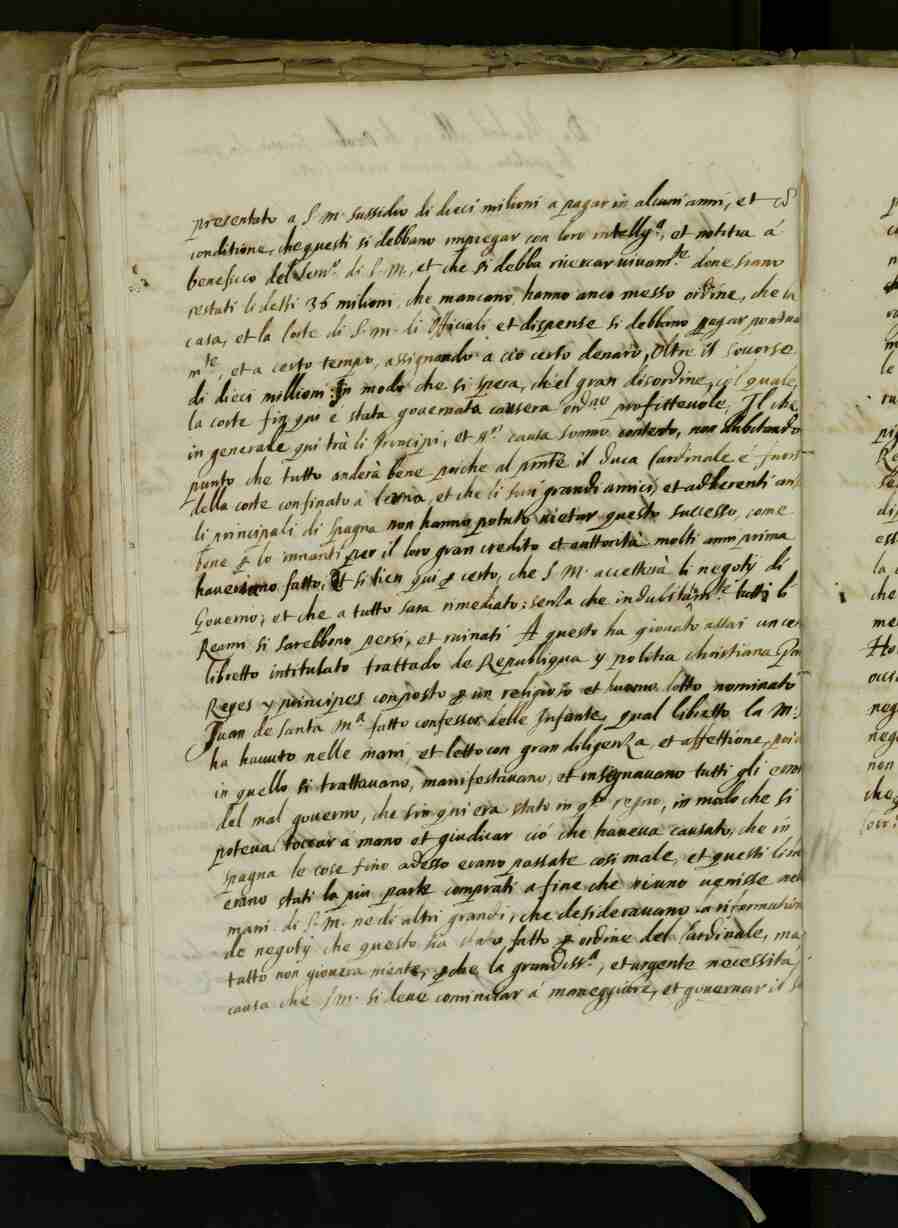 presentato a S. M. sussidio di dieci milioni a pagar in alcuni anni, et cõ
conditione, che questi si debbano impiegar con loro intellig.ª, et notitia á
beneficio del ser.º di S. M., et che si debba ricercar vivam.te dóne siano
restati li detti 36 milioni, che mancano, hanno anco messo ordine, che la
casa, et la Corte di S. M. li Officiali et dispense si debbano pagar pontual
m.te, et a certo tempo, assignando á ció certo denaro, oltre il soccorso
di dieci millioni In modo che si spera, ch'el gran disordine, col quale
la corte fin qui é stata governata causera ord.ne profittevole, Il che
in generale qui trà li Principi, et causa sommo contento, non dubitando
punto che tutto anderà bene poiche al pnte il Duca Cardinale e fuori
della corte confinato á Lerma, et che li suoi grandi amici, et adherenti an
li principali di spagna non hanno potuto vietar questo successo, come
bene p lo innanti per il loro gran credito et auttorità molti anni prima
haveriano fatto, Et si tien qui p certo, che S. M. accetterà li negotij di
Governo, et che a tutto sara rimediato: senza che indubitam.te tutti li
Reami si sarebbono persi, et ruinati A questo ha giovato assai un cer
libretto intitulato trattado de Republiqua y politia christiana Pa
Reges y principes composto p un religioso et huomo dotto nominato
Juan de Santa M.ª fatto confessor delle Infante, qual libretto la M.
ha havuto nelle mani, et letto con gran diligenza, et affettione, poic
in quello si trattavano, manifestavano, et insignavano tutti gli error
del mal governo, che sin qui era stato in q.to regno, in modo che si
poteva toccar á mano et giudicar ció che haveva causato, che in
spagna le cose fino adesso erano passate cosi male, et questi libr
erano stati la piu parte comprati a fine che niuno venisse nel
mani di S. M. ne di altri grandi, che desideravano la riformation
de negotij che questo sia stato fatto p ordine del Cardinale, ma
tutto non giovera niente, pche la grandiss.ª, et urgente necessitá
causa che S M. si deve cominciar á maneggiare, et governar il su